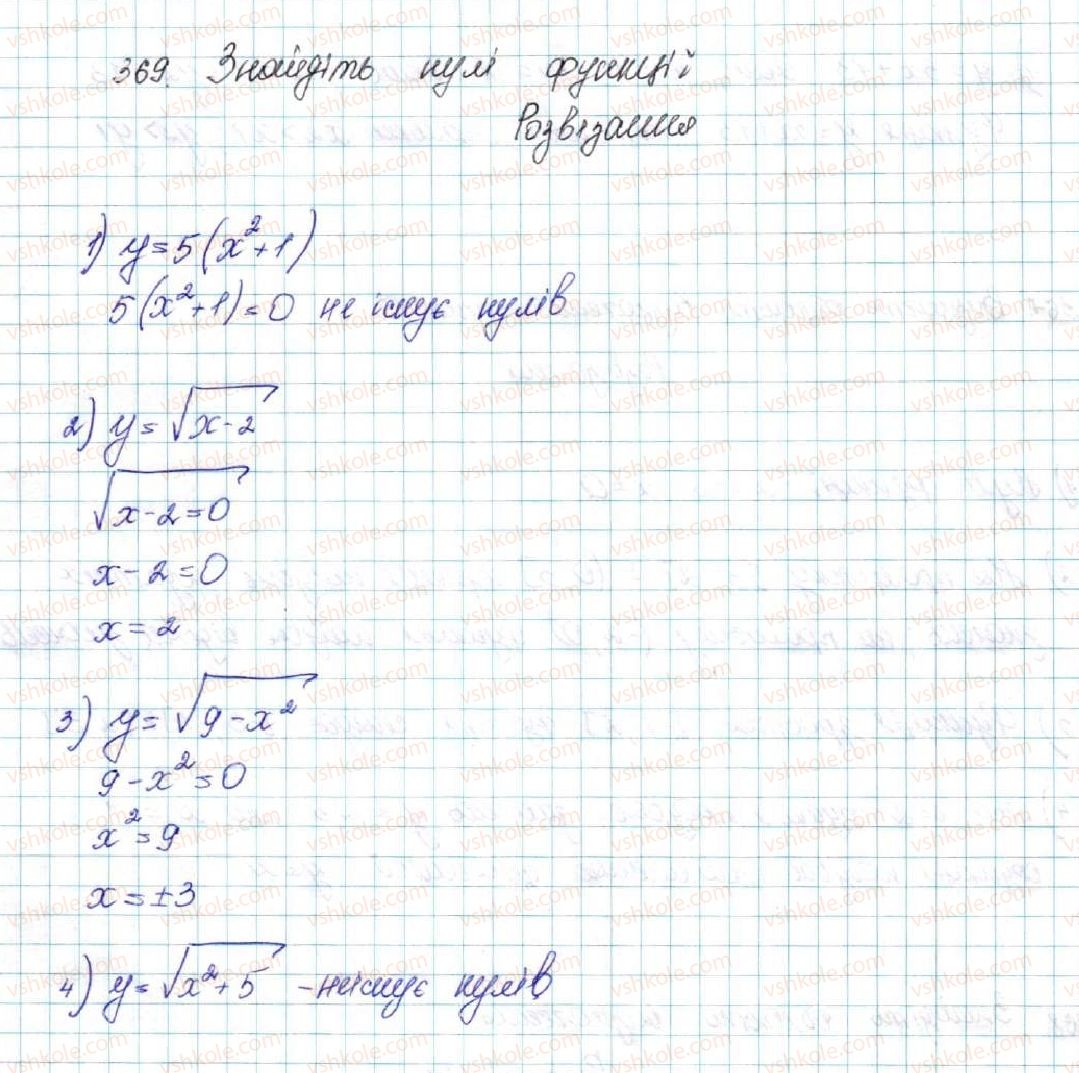 369. Знайдіть нулі функції
Розв'язання
1) y=5(x²+1)
5(x²+1)=0 не існує нулів
2) y=√(x-2)
√(x-2=0)
x-2=0
x=2
3) y=√(9-x²)
9-x²=0
x²=9
x=±3
4) y=√(x²+5) - не існує нулів
vshkole.com